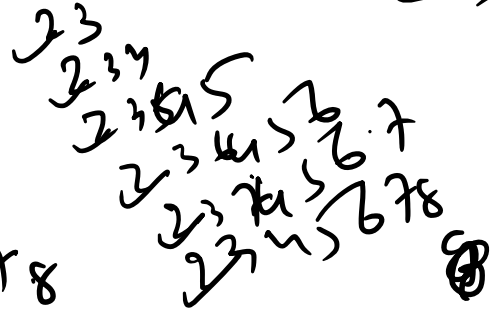 2 3
2 3 4
2 3 4 5
2 3 4 5 6
2 3 4 5 6 7
2 3 4 5 6 7 8
8